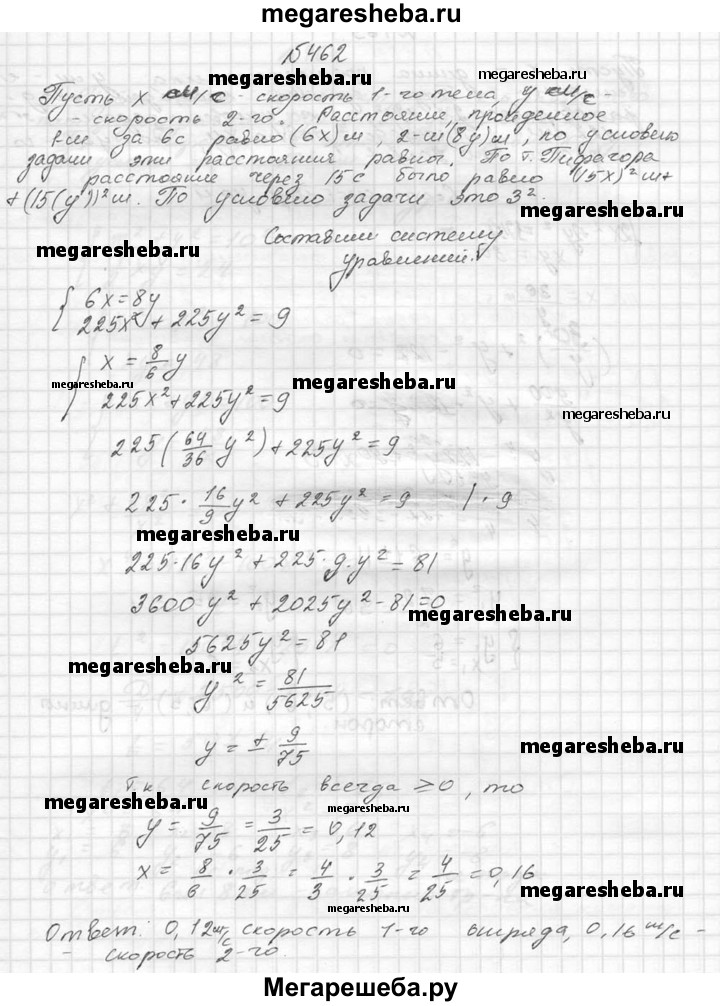 megaresheba.ru
№462
Пусть x м/с - скорость 1-го тела, y м/с -
- скорость 2-го. Расстояние, пройденное
1-м за 6с равно (6x)м, 2-м (8y)м, по условию
задачи эти расстояния равны. По т. Пифагора
расстояние через 15с было равно (15x)²м+
+(15(y))²м. По условию задачи это 3².
megaresheba.ru
Составим систему
уравнений:
megaresheba.ru
{ 6x = 8y
225x² + 225y² = 9
{ x = 8/6 y
megaresheba.ru
megaresheba.ru
225x² + 225y² = 9
megaresheba.ru
225(64/36 y²) + 225y² = 9
225 · 16/9 y² + 225y² = 9 | · 9
megaresheba.ru
225·16y² + 225·9·y² = 81
3600y² + 2025y² - 81 = 0
megaresheba.ru
5625y² = 81
megaresheba.ru
y² = 81/5625
y = ± 9/75
megaresheba.ru
Т.к скорость всегда ≥ 0, то
megaresheba.ru
megaresheba.ru
y = 9/75 = 3/25 = 0,12
x = 8/6 · 3/25 = 4/3 · 3/25 = 4/25 = 0,16
megaresheba.ru
megaresheba.ru
Ответ: 0,12м/с скорость 1-го 0,16 м/с -
- скорость 2-го.
Мегарешеба.ру